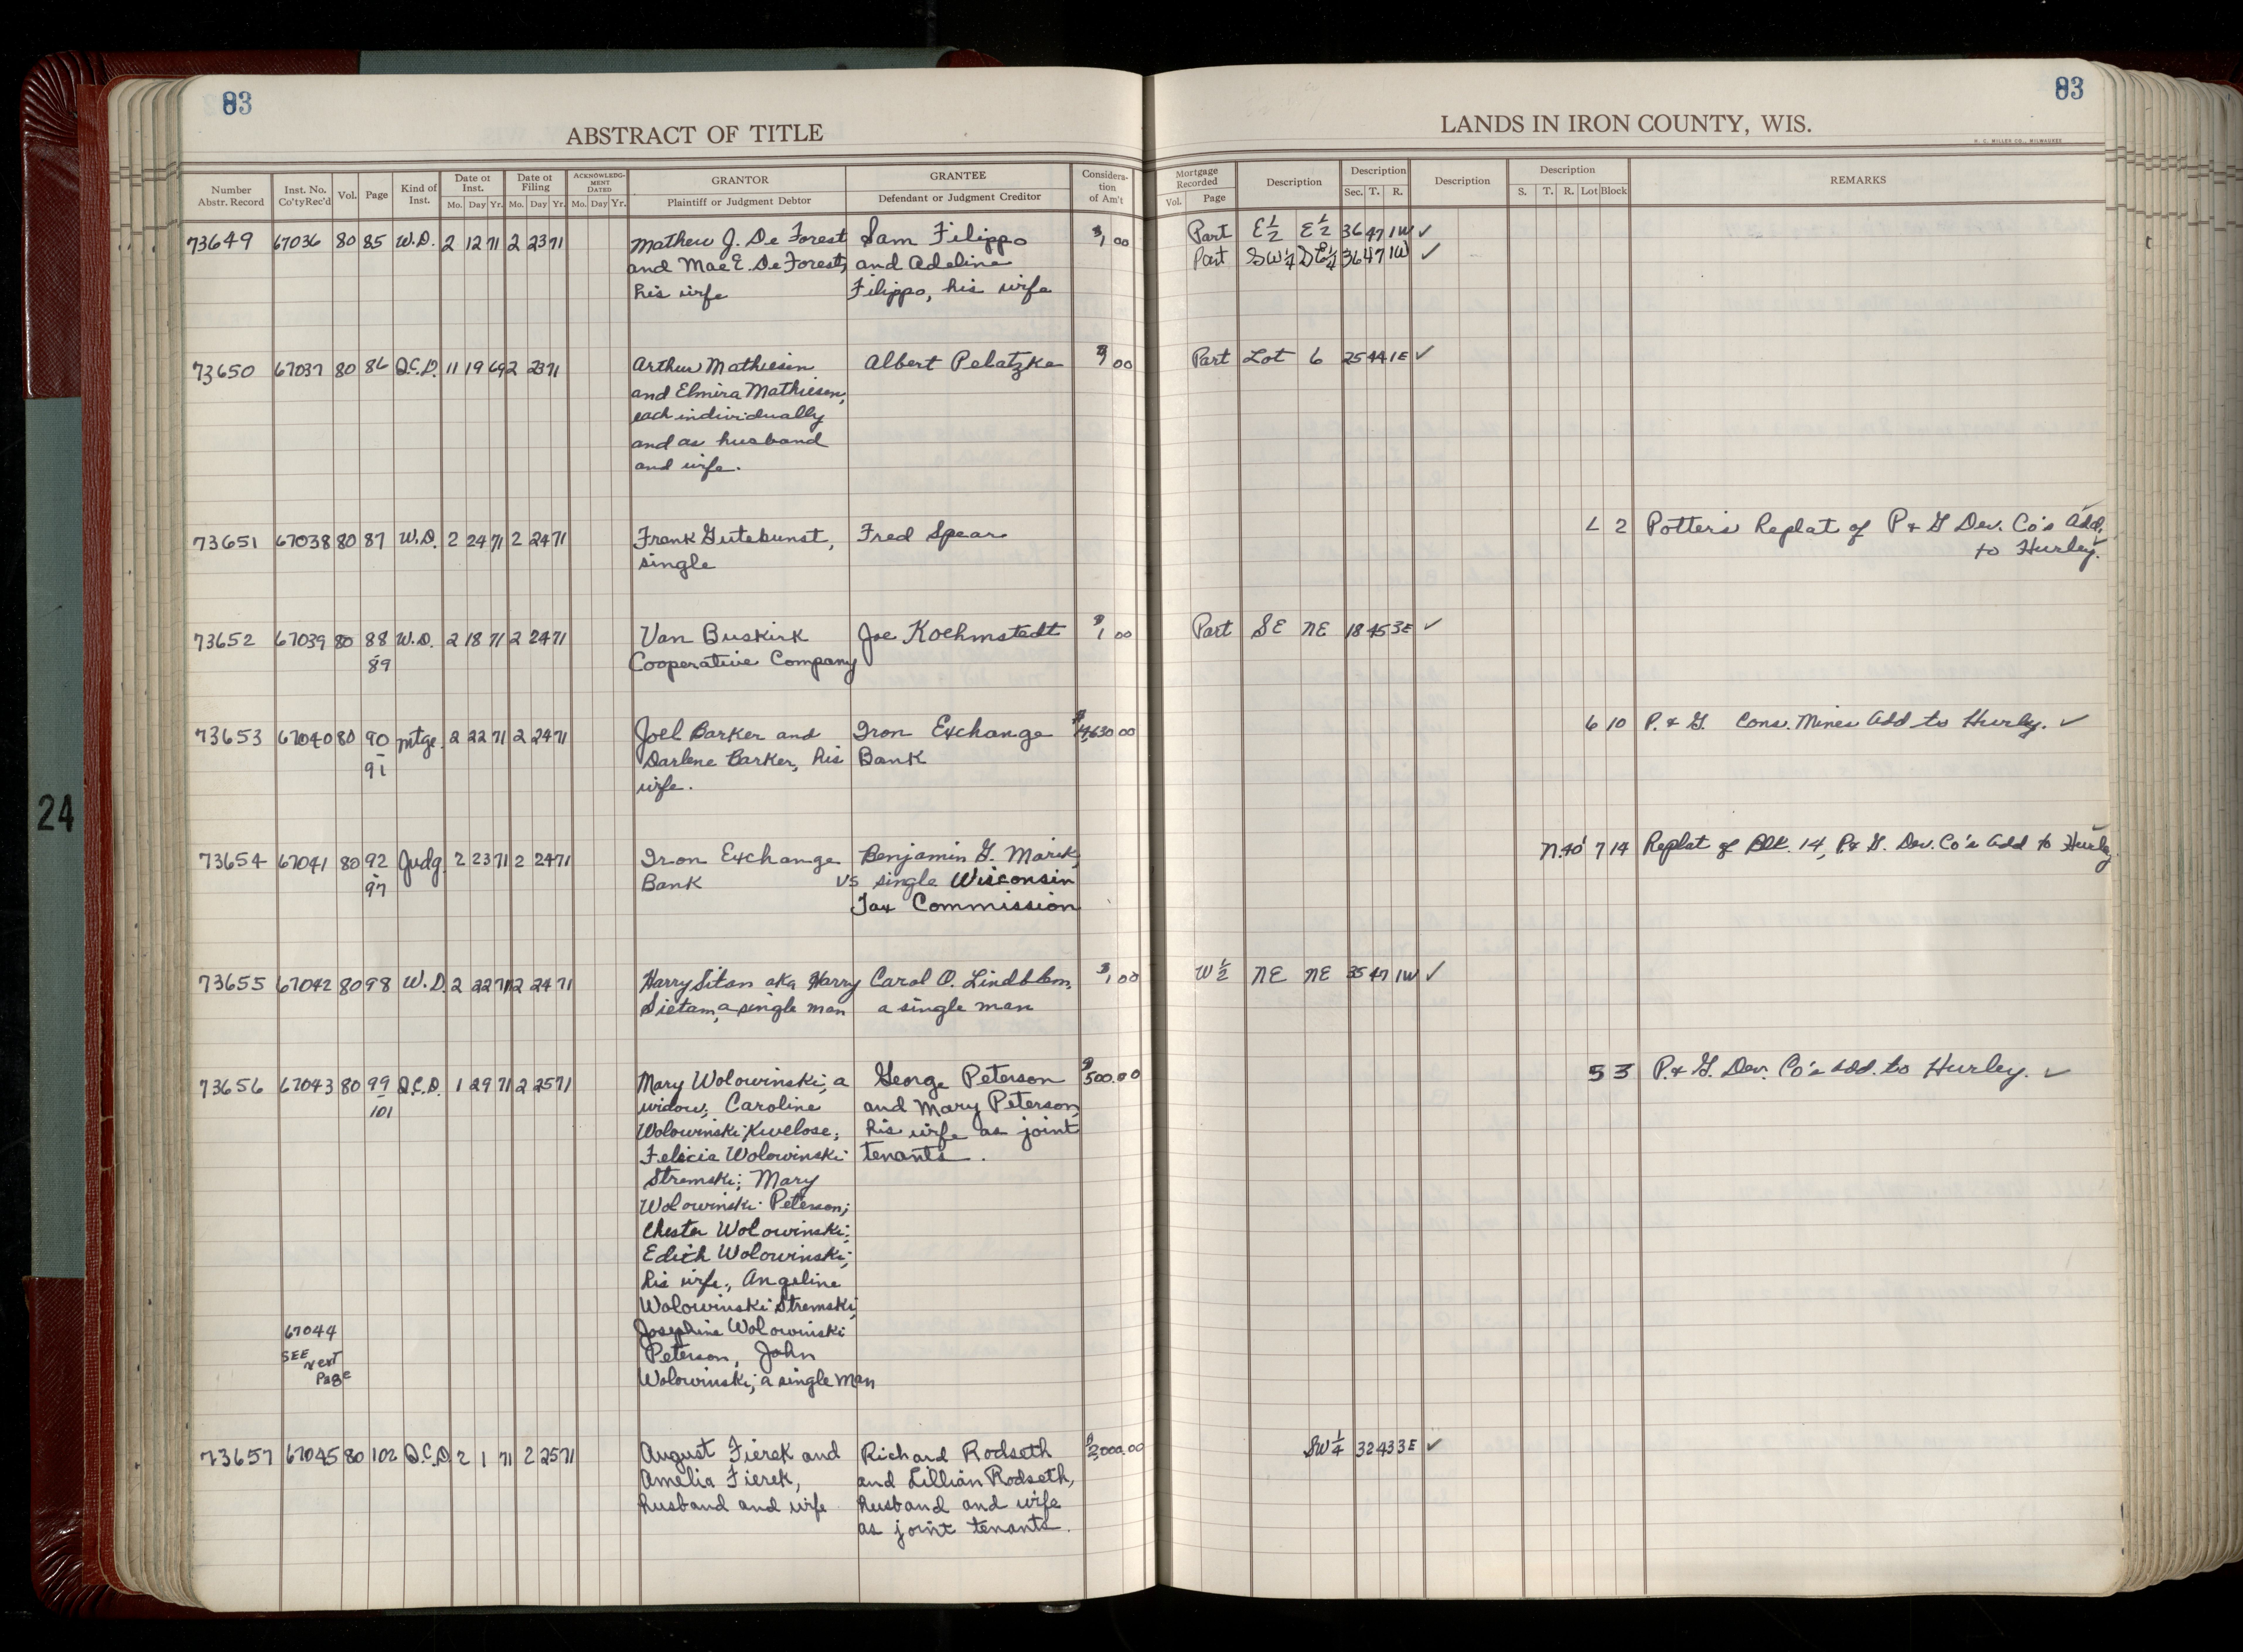 83
83
ABSTRACT OF TITLE
LANDS IN IRON COUNTY, WIS.
H. C. MILLER CO., MILWAUKEE
Number Abstr. Record | Inst. No. Co'ty Rec'd | Vol. | Page | Kind of Inst. | Date of Inst. Mo. Day Yr. | Date of Filing Mo. Day Yr. | ACKNOWLEDGMENT DATED Mo. Day Yr. | GRANTOR Plaintiff or Judgment Debtor | GRANTEE Defendant or Judgment Creditor | Consideration of Am't | Mortgage Recorded Vol. Page | Description | Description Sec. T. R. | Description | Description S. T. R. Lot Block | REMARKS
73649 67036 80 85 W.D. 2 12 71 2 23 71 Mathew J. De Forest Sam Filippo $1 00 Part E½ E½ 36 47 1W ✓
and Mae E. De Forest, and Adeline Part SW¼ SE¼ 36 47 1W ✓
his wife Filippo, his wife
73650 67037 80 86 Q.C.D. 11 19 69 2 23 71 Arthur Mathiesen Albert Pelatzke $1 00 Part Lot 6 25 44 1E ✓
and Elmira Mathiesen,
each individually
and as husband
and wife.
73651 67038 80 87 W.D. 2 24 71 2 24 71 Frank Gutebunst, Fred Spear L 2 Potter's Replat of P & G Dev. Co's Add.
single to Hurley.
73652 67039 80 88 W.D. 2 18 71 2 24 71 Van Buskirk Joe Koehmstedt $1 00 Part SE NE 18 45 3E ✓
89 Cooperative Company
73653 67040 80 90 mtge. 2 22 71 2 24 71 Joel Barker and Iron Exchange $4,630 00 6 10 P. & G. Cons. Mines Add to Hurley. ✓
91 Darlene Barker, his Bank
wife.
73654 67041 80 92 Judg. 2 23 71 2 24 71 Iron Exchange Benjamin G. Marik, N.40' 7 14 Replat of Blk. 14, P. & G. Dev. Co's Add to Hurley
97 Bank vs single Wisconsin
Tax Commission
73655 67042 80 98 W.D. 2 22 71 2 24 71 Harry Sitan aka Harry Carol O. Lindblom, $1 00 W½ NE NE 35 47 1W ✓
Sietam, a single man a single man
73656 67043 80 99 Q.C.D. 1 29 71 2 25 71 Mary Wolowinski, a George Peterson $500.00 5 3 P. & G. Dev. Co's Add. to Hurley. ✓
101 widow; Caroline and Mary Peterson,
Wolowinski Kwelose; his wife as joint
Felicia Wolowinski tenants.
Stremski; Mary
Wolowinski Peterson;
Chester Wolowinski;
Edith Wolowinski;
his wife., Angeline
Wolowinski Stremski;
67044 Josephine Wolowinski
SEE next Page Peterson, John
Wolowinski, a single man
73657 67045 80 102 Q.C.D. 2 1 71 2 25 71 August Fierek and Richard Rodseth $2,000.00 SW¼ 32 43 3E ✓
Amelia Fierek, and Lillian Rodseth,
husband and wife husband and wife
as joint tenants.
24